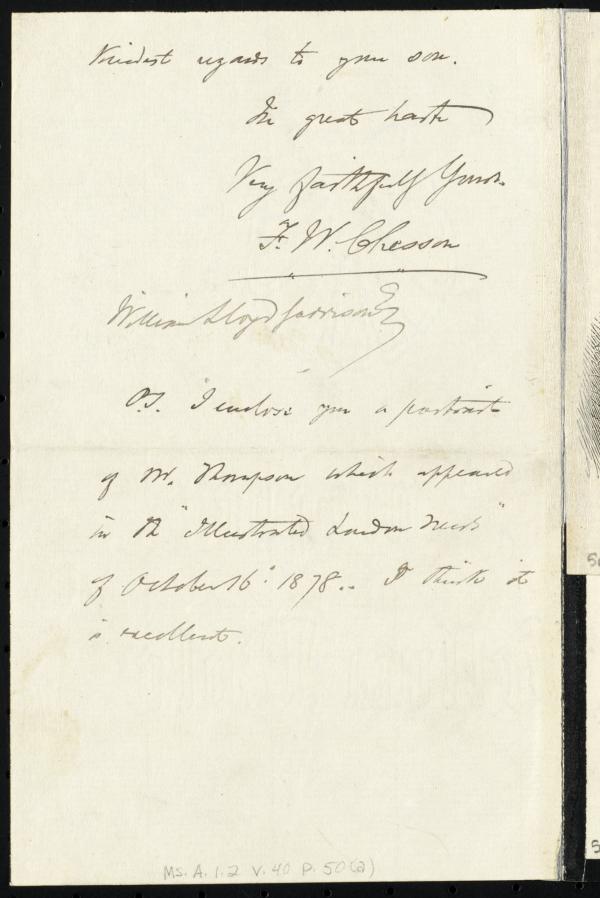 Kindest regards to your son.
In great haste
Very faithfully Yours.
F. W. Chesson
William Lloyd Garrison Esq
P.S. I enclose you a portrait
of Mr. Thompson which appeared
in the "Illustrated London News"
of October 16. 1878.. I think it
is excellent.
Ms. A. 1.2 V. 40 P. 50(a)
5